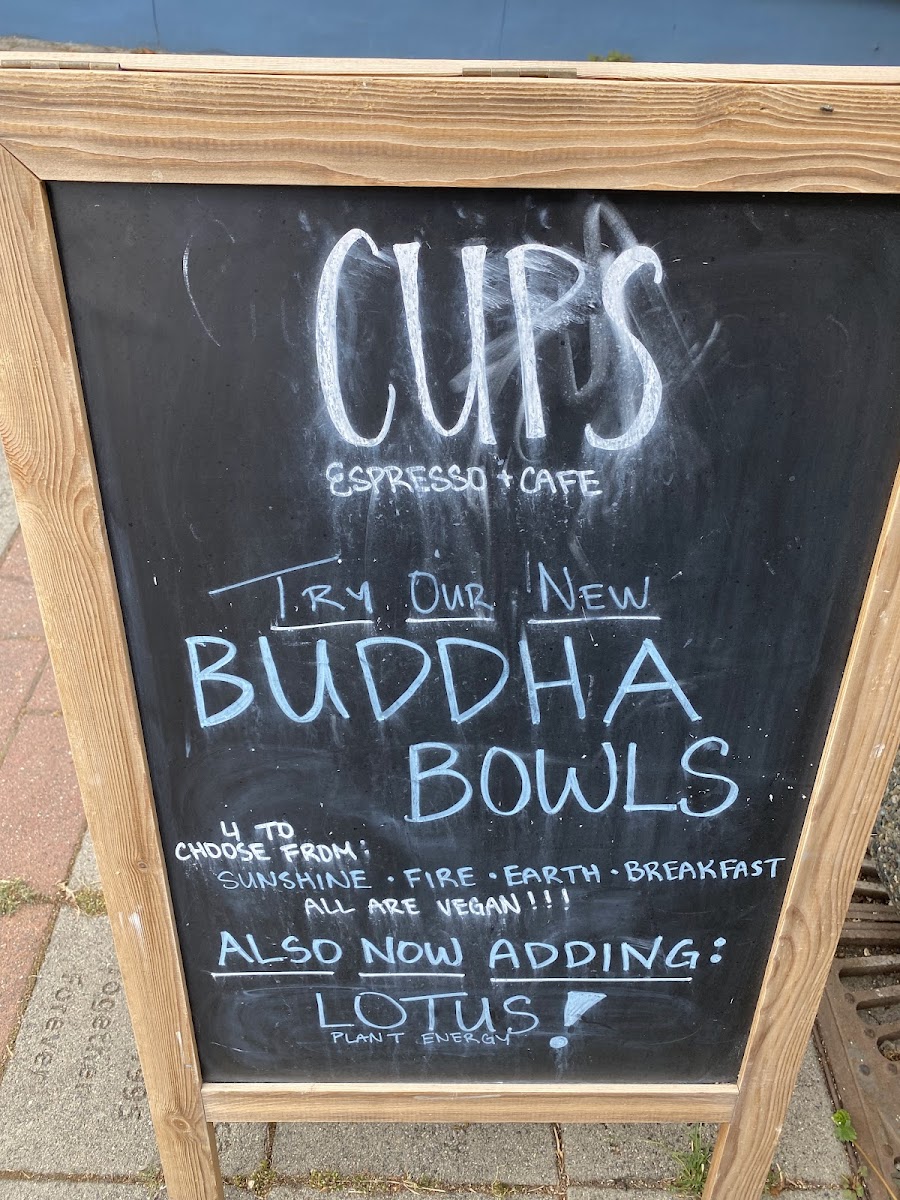 CUPS
ESPRESSO + CAFE
TRY OUR NEW
BUDDHA
BOWLS
4 TO
CHOOSE FROM:
SUNSHINE · FIRE · EARTH · BREAKFAST
ALL ARE VEGAN!!!
ALSO NOW ADDING:
LOTUS!
PLANT ENERGY
Together
Forever